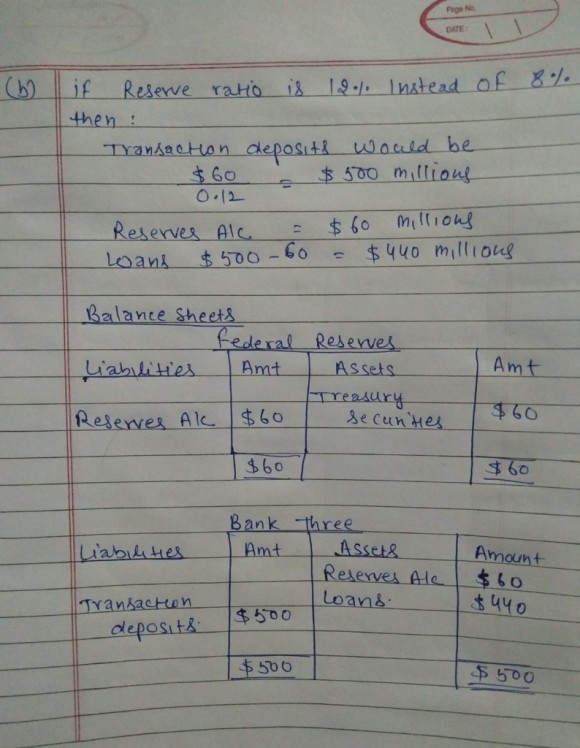 Page No.
DATE: / /
(b) if Reserve ratio is 12% Instead of 8%
then :
Transaction deposits would be
$60
0.12
= $500 millions
Reserves A/c = $60 millions
Loans $500 - 60 = $440 millions
Balance sheets
Federal Reserves
Liabilities Amt Assets Amt
Treasury
Reserves A/c $60 securities $60
$60 $60
Bank Three
Liabilities Amt Assets Amount
Reserves A/c $60
Transaction Loans. $440
deposits. $500
$500 $500